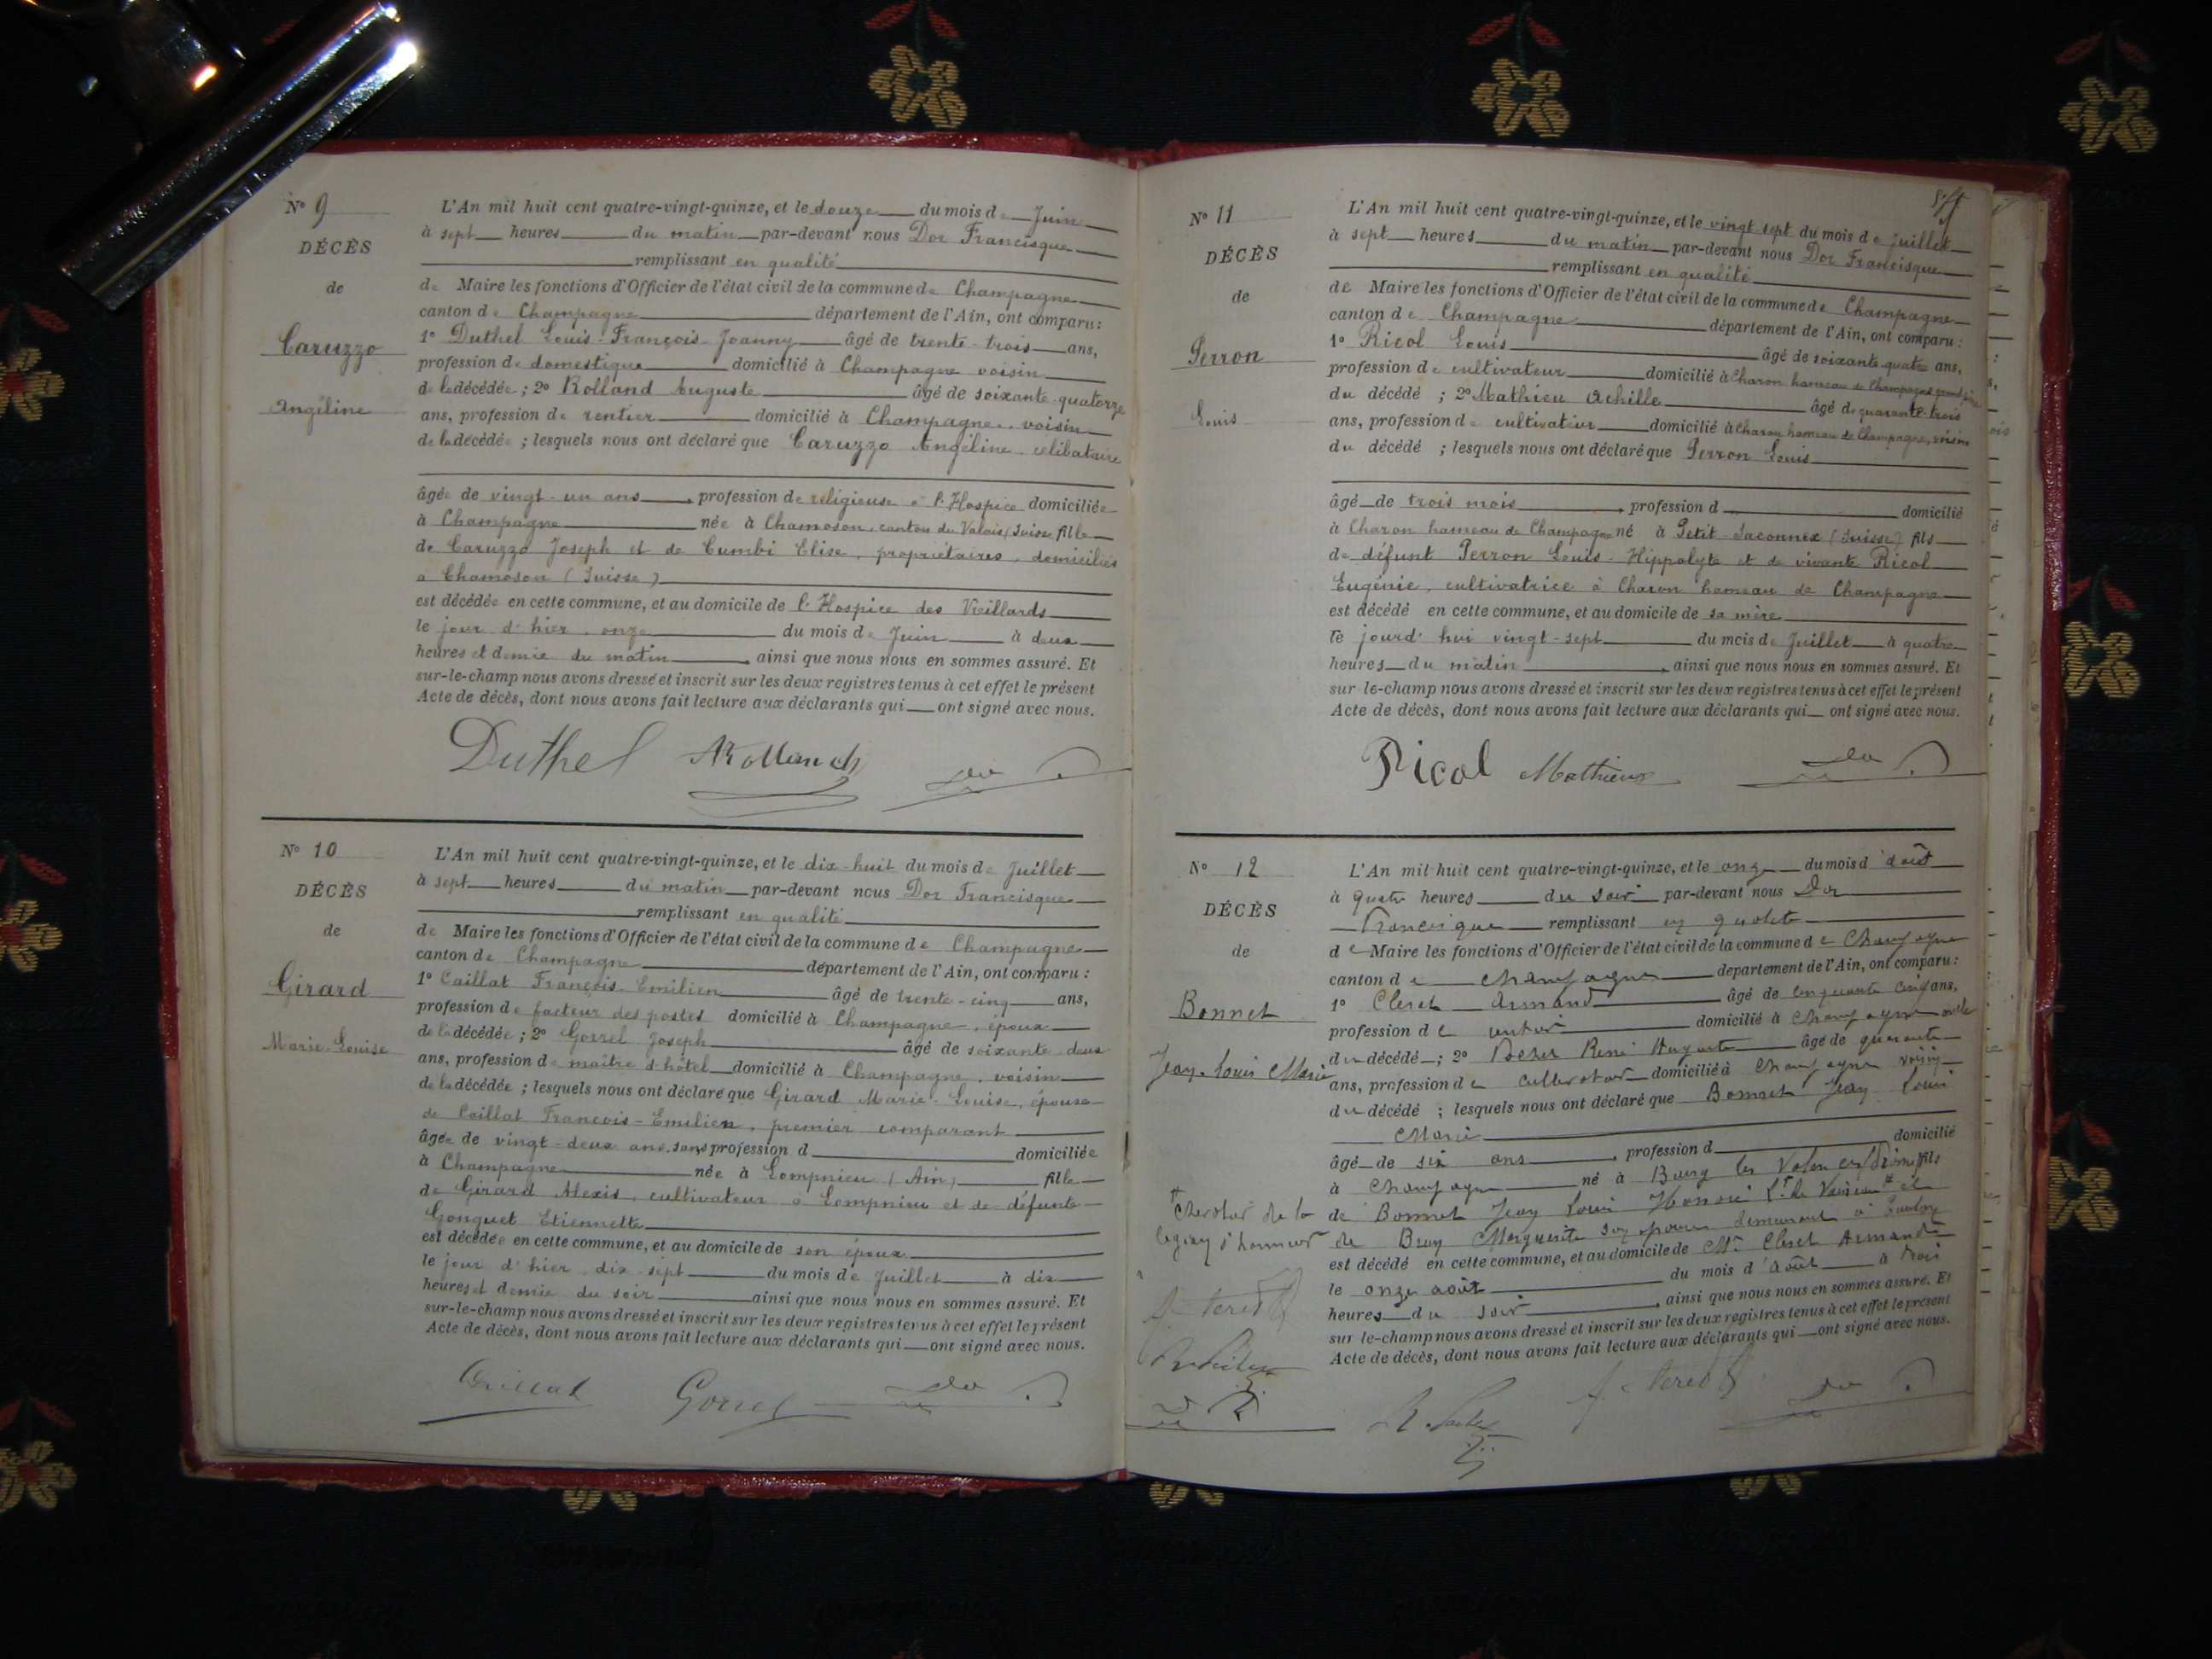 N° 9
DÉCÈS
de
Caruzzo
Angéline
L'An mil huit cent quatre-vingt-quinze, et le douze du mois de Juin
à sept heures du matin par-devant nous Dor Francisque
remplissant en qualité
de Maire les fonctions d'Officier de l'état civil de la commune de Champagne
canton de Champagne département de l'Ain, ont comparu:
1° Duthel Louis-François-Joanny âgé de trente-trois ans,
profession de domestique domicilié à Champagne voisin
de la décédée; 2° Rolland Auguste âgé de soixante-quatorze
ans, profession de rentier domicilié à Champagne, voisin
de la décédée; lesquels nous ont déclaré que Caruzzo Angéline célibataire
âgée de vingt-un ans, profession de religieuse à l'Hospice domiciliée
à Champagne née à Chamoson, canton du Valais (Suisse fille
de Caruzzo Joseph et de Cumbi Elise, propriétaires, domiciliés
à Chamoson (Suisse)
est décédée en cette commune, et au domicile de l'Hospice des Vieillards
le jour d'hier onze du mois de Juin à deux
heures et demie du matin, ainsi que nous nous en sommes assuré. Et
sur-le-champ nous avons dressé et inscrit sur les deux registres tenus à cet effet le présent
Acte de décès, dont nous avons fait lecture aux déclarants qui ont signé avec nous.
Duthel ARolland
N° 10
DÉCÈS
de
Girard
Marie-Louise
L'An mil huit cent quatre-vingt-quinze, et le dix-huit du mois de Juillet
à sept heures du matin par-devant nous Dor Francisque
remplissant en qualité
de Maire les fonctions d'Officier de l'état civil de la commune de Champagne
canton de Champagne département de l'Ain, ont comparu:
1° Caillat François-Emilien âgé de trente-cinq ans,
profession de facteur des postes domicilié à Champagne, époux
de la décédée; 2° Gorrel Joseph âgé de soixante-deux
ans, profession de maître d'hôtel domicilié à Champagne, voisin
de la décédée; lesquels nous ont déclaré que Girard Marie-Louise, épouse
de Caillat François-Emilien, premier comparant
âgée de vingt-deux ans, sans profession d domiciliée
à Champagne née à Lompnieu (Ain) fille
de Girard Alexis, cultivateur à Lompnieu et de défunte
Gonguet Etiennette
est décédée en cette commune, et au domicile de son époux
le jour d'hier dix-sept du mois de Juillet à dix
heures et demie du soir ainsi que nous nous en sommes assuré. Et
sur-le-champ nous avons dressé et inscrit sur les deux registres tenus à cet effet le présent
Acte de décès, dont nous avons fait lecture aux déclarants qui ont signé avec nous.
Caillat Gorrel
N° 11
DÉCÈS
de
Perron
Louis
L'An mil huit cent quatre-vingt-quinze, et le vingt sept du mois de Juillet
à sept heures du matin par-devant nous Dor Francisque
remplissant en qualité
de Maire les fonctions d'Officier de l'état civil de la commune de Champagne
canton de Champagne département de l'Ain, ont comparu:
1° Ricol Louis âgé de soixante-quatre ans,
profession de cultivateur domicilié à Charon hameau de Champagne grand père
du décédé; 2° Mathieu Achille âgé de quarante-trois
ans, profession de cultivateur domicilié à Charon hameau de Champagne, voisin
du décédé; lesquels nous ont déclaré que Perron Louis
âgé de trois mois, profession d domicilié
à Charon hameau de Champagne né à Petit-Saconnex (Suisse) fils
de défunt Perron Louis-Hippolyte et de vivante Ricol
Eugénie, cultivatrice à Charon hameau de Champagne
est décédé en cette commune, et au domicile de sa mère
le jourd'hui vingt-sept du mois de Juillet à quatre
heures du matin, ainsi que nous nous en sommes assuré. Et
sur-le-champ nous avons dressé et inscrit sur les deux registres tenus à cet effet le présent
Acte de décès, dont nous avons fait lecture aux déclarants qui ont signé avec nous.
Ricol Mathieu
N° 12
DÉCÈS
de
Bonnet
Jean-Louis Marie
L'An mil huit cent quatre-vingt-quinze, et le onze du mois d'août
à quatre heures du soir par-devant nous Dor
Francisque remplissant en qualité
de Maire les fonctions d'Officier de l'état civil de la commune de Champagne
canton de Champagne département de l'Ain, ont comparu:
1° Cleret Armand âgé de cinquante cinq ans,
profession de rentier domicilié à Champagne oncle
du décédé; 2° René Auguste âgé de quarante
ans, profession de cultivateur domicilié à Champagne voisin
du décédé; lesquels nous ont déclaré que Bonnet Jean Louis
Marie
âgé de six ans, profession d domicilié
à Champagne né à Bourg les Valence (Drôme) fils
de Bonnet Jean Louis Honoré Lt de Vaisseau et
de Marguerite son épouse demeurant à Toulon
est décédé en cette commune, et au domicile de Mr Cleret Armand
le onze août du mois d'août à trois
heures du soir, ainsi que nous nous en sommes assuré. Et
sur le-champ nous avons dressé et inscrit sur les deux registres tenus à cet effet le présent
Acte de décès, dont nous avons fait lecture aux déclarants qui ont signé avec nous.
Chevalier de la
légion d'honneur